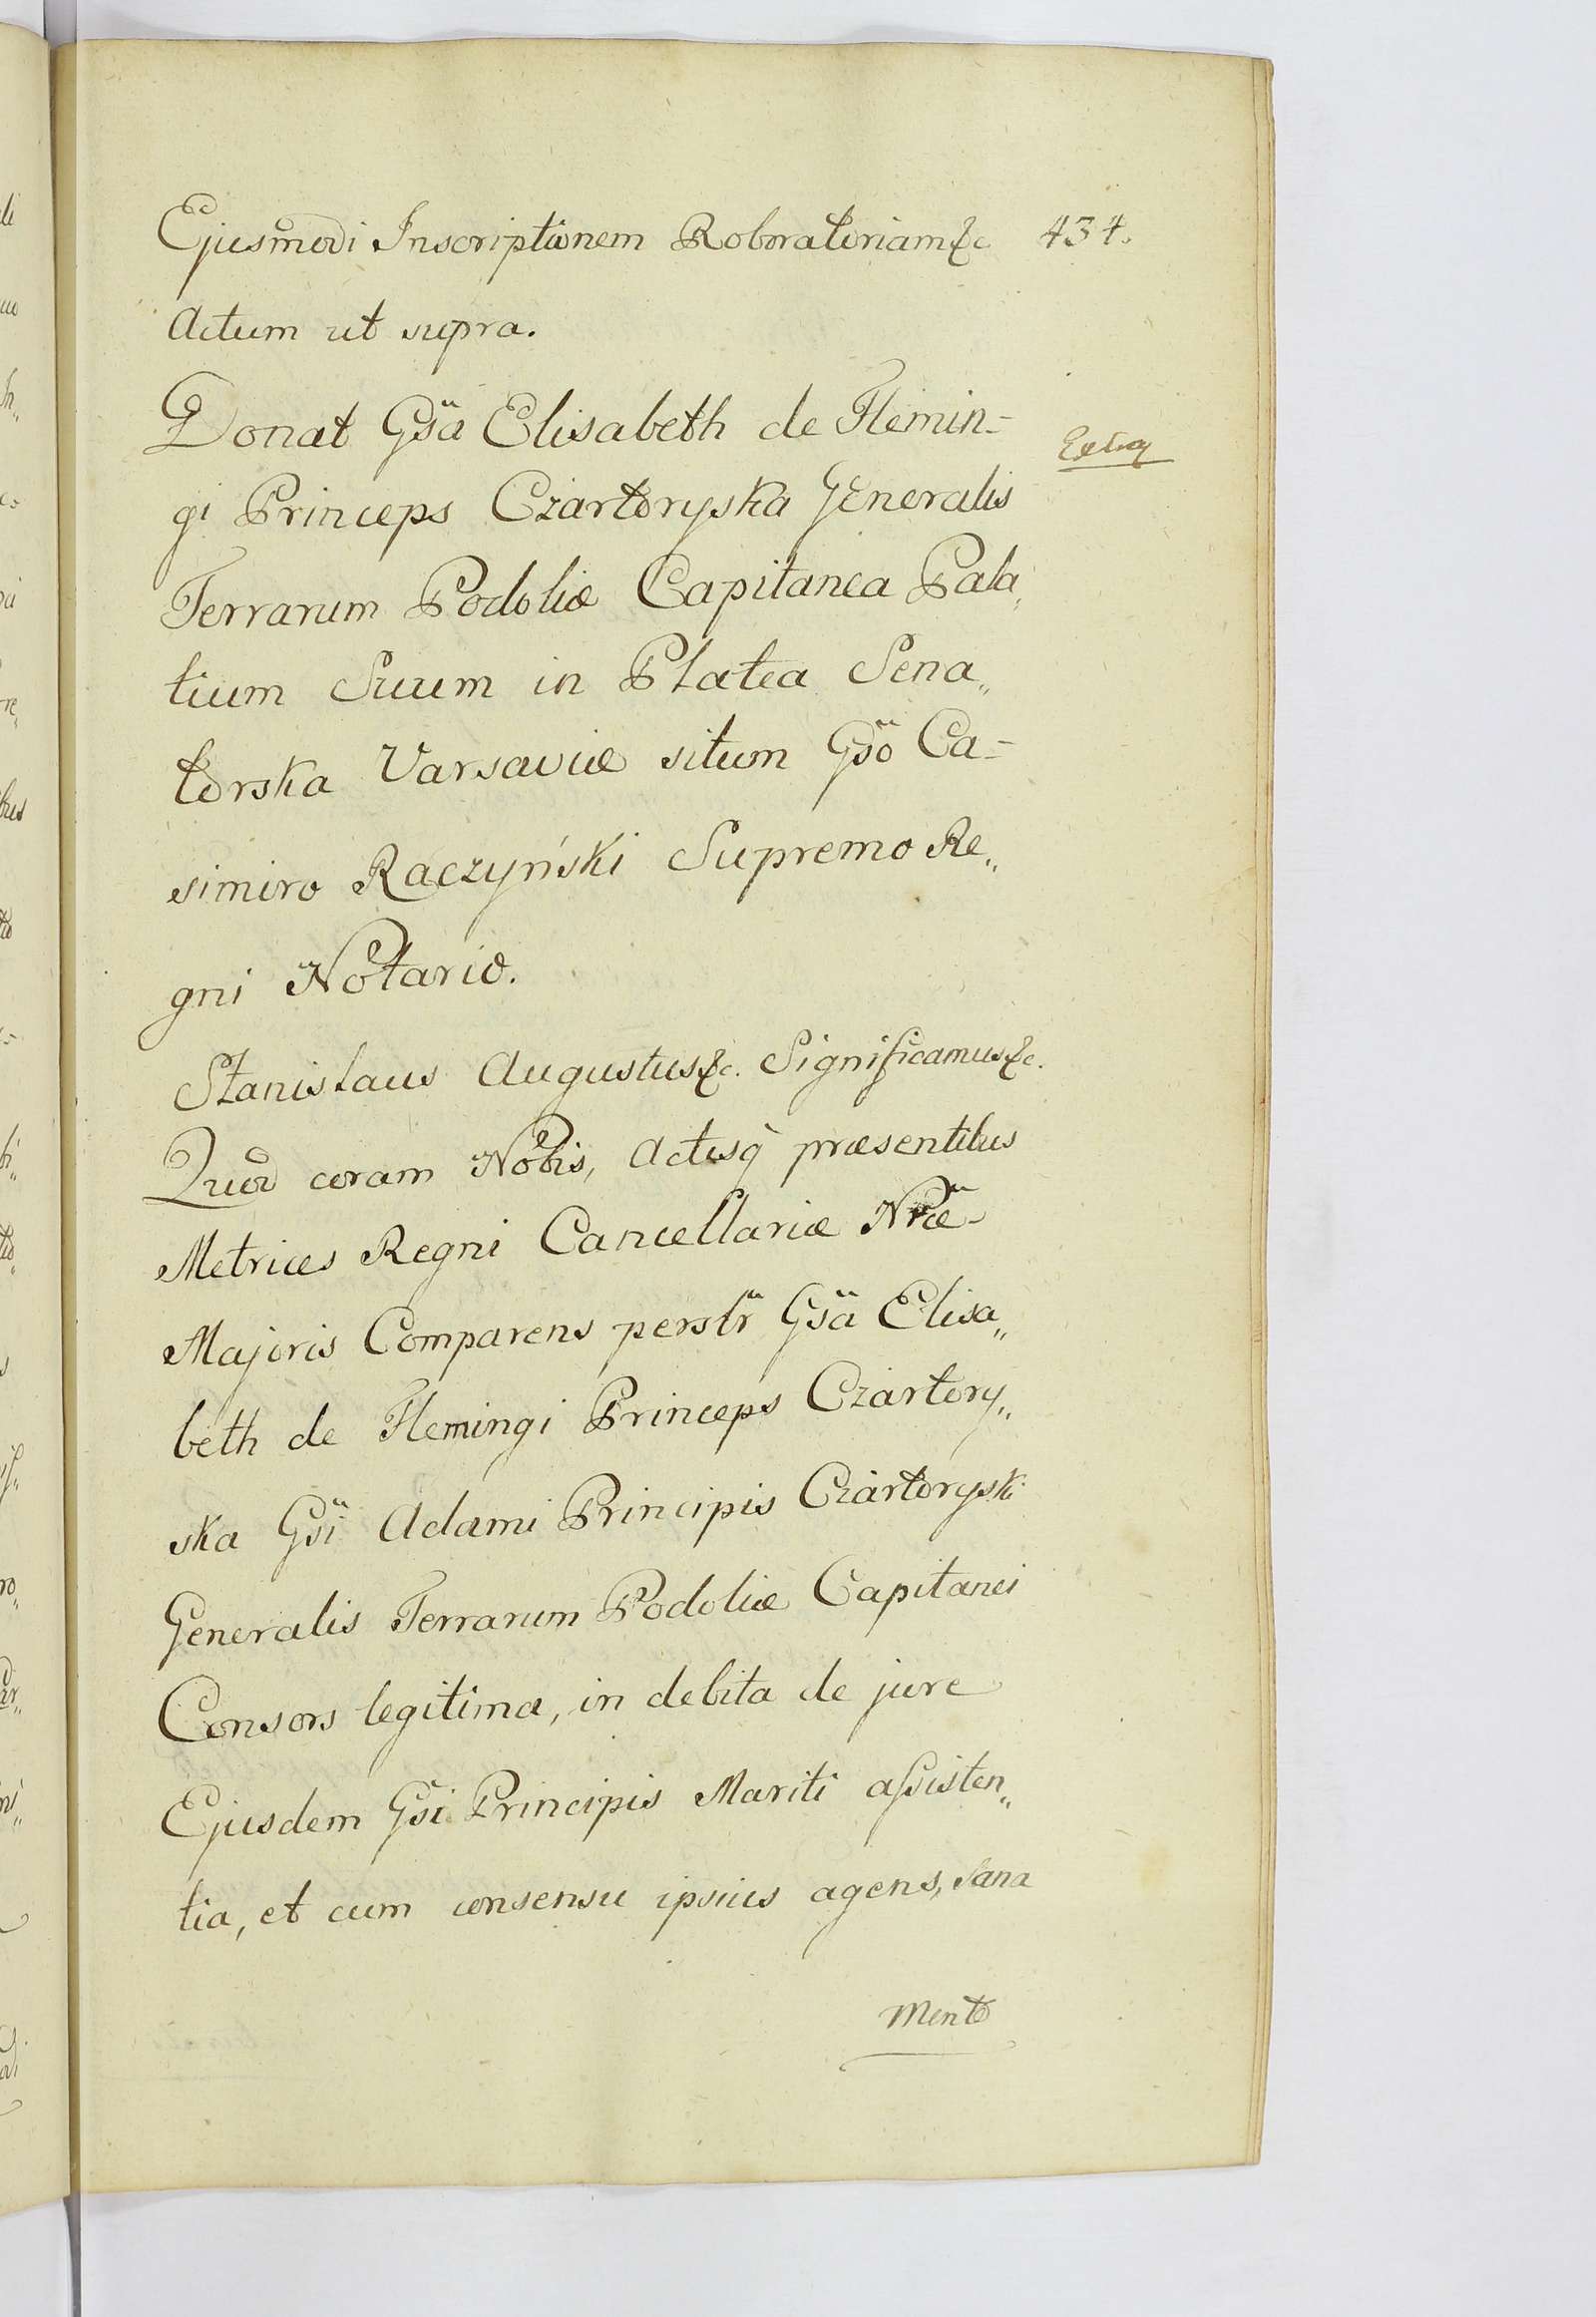 Ejusmodi Inscriptionem Roboratoriam &c 434.
Actum ut supra.
Donat Gsa Elisabeth de Flemin-
gi Princeps Czartoryska Generalis
Terrarum Podoliæ Capitanea Pala„
tium Suum in Platea Sena„
torska Varsaviæ situm Gso Ca-
simiro Raczyński Supremo Re„
gni Notario.
Stanislaus Augustus &c. Significamus &c.
Quod coram Nobis, Actisq præsentibus
Metrices Regni Cancellariæ Nræ
Majoris Comparens perslr Gsa Elisa„
beth de Flemingi Princeps Czartory„
ska Gsi Adami Principis Czartoryski
Generalis Terrarum Podoliæ Capitanei
Consors legitima, in debita de jure
Ejusdem Gsi Principis Mariti assisten„
tia, et cum consensu ipsius agens, sana
Mente